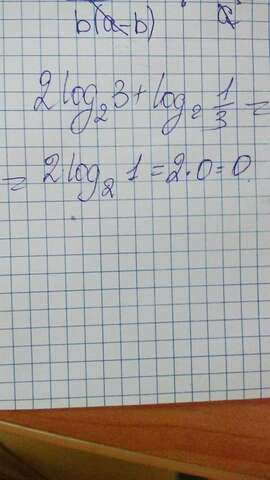 b(a-b) a
2 log₂ 3 + log₂ 1/3 =
= 2 log₂ 1 = 2·0 = 0